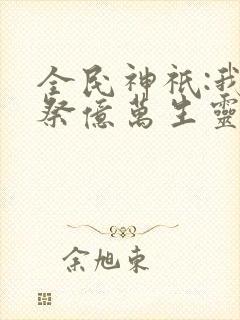 全民神祇:我
祭億萬生靈
余旭東